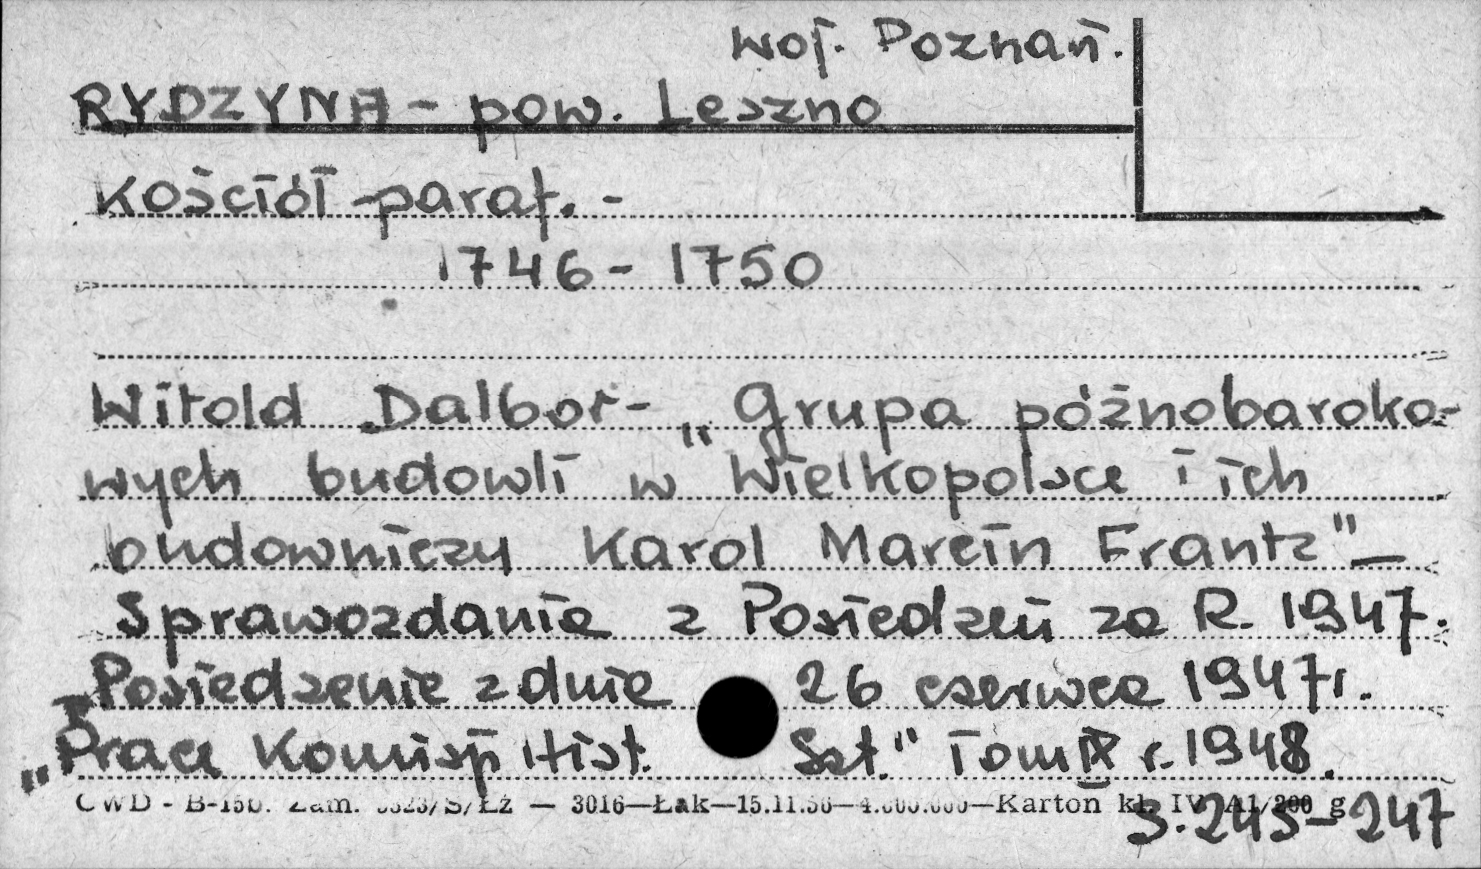 woj. Poznań.
RYDZYNA - pow. Leszno
Kościół paraf. -
1746 - 1750
Witold Dalbor - „Grupa późnobaroko-
wych budowli w Wielkopolsce i ich
budowniczy Karol Marcin Frantz" —
Sprawozdania z Posiedzeń za R. 1947.
Posiedzenie z dnia 26 czerwca 1947 r.
„Prace Komisji Hist. Szt." Tom IX r. 1948.
CWD - B-15b. Zam. /S/Łż — 3016—Łak—15.11.56—4.000.000—Karton kl. IV A1/200 g
S. 245 - 247